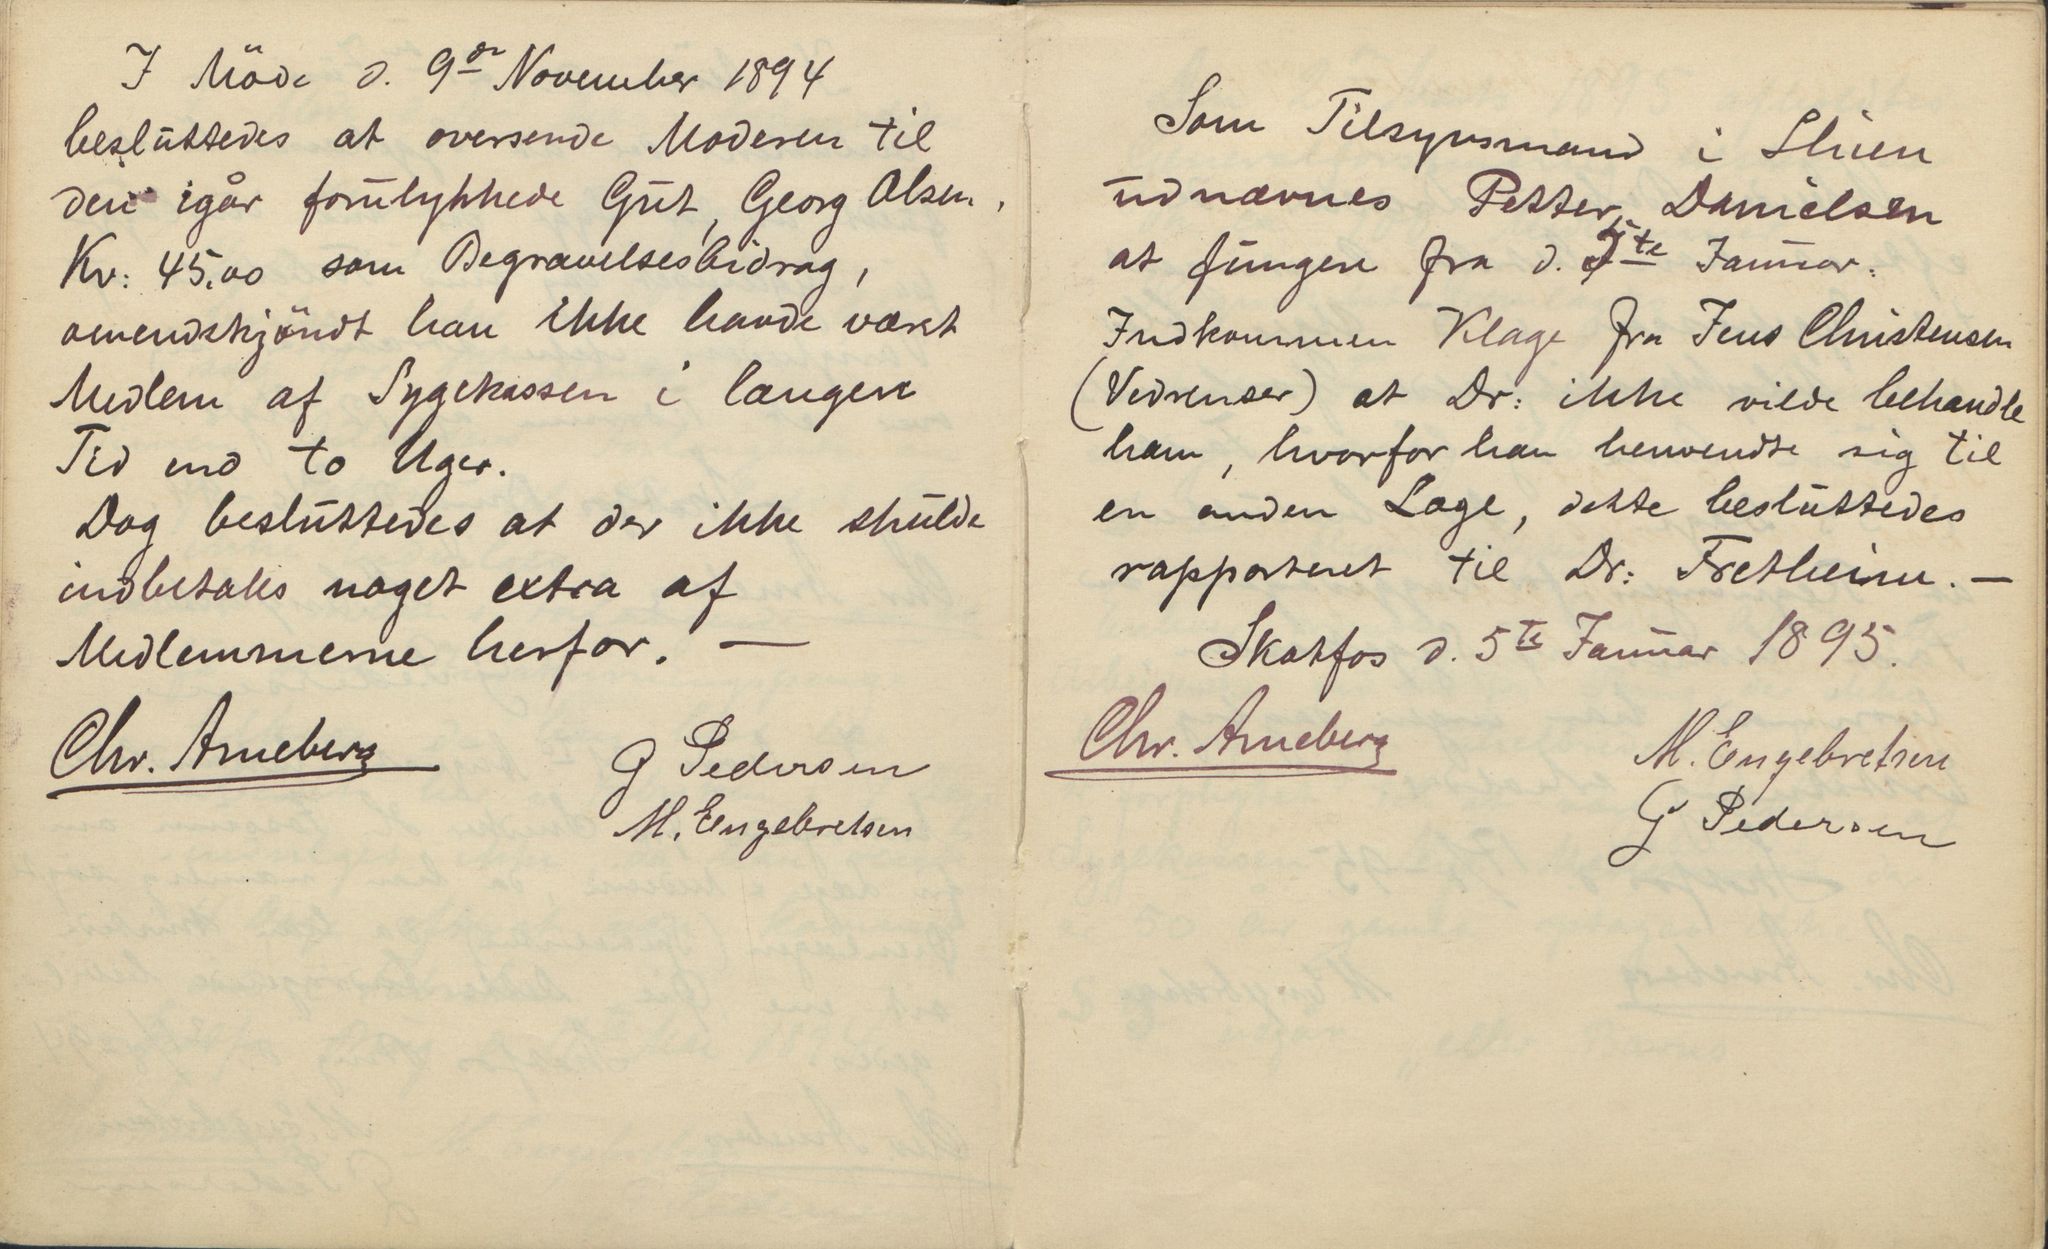 I Möde d. 9de November 1894
beslüttedes at oversende Moderen til
den igår forulykkede Gut, Georg Olsen,
Kr: 45,00 som Begravelsesbidrag,
omendskjöndt han ikke havde været
Medlem af Sygekassen i længere
Tid end to Uger.
Dog beslüttedes at der ikke skülde
indbetales noget extra af
Medlemmerne herfor. —
Chr. Arneberg
G Pedersen
M. Engebretsen
Som Tilsynsmand i Skien
üdnævnes Petter Danielsen
at füngere fra d. 5te Janüar.
Indkommen Klage fra Jens Christensen
(Vedrenser) at Dr: ikke vilde behandle
ham, hvorfor han henvendte sig til
en anden Læge, dette beslüttedes
rapporteret til Dr: Fretheim. —
Skotfos d. 5te Janüar 1895.
Chr. Arneberg
M. Engebretsen
G Pedersen